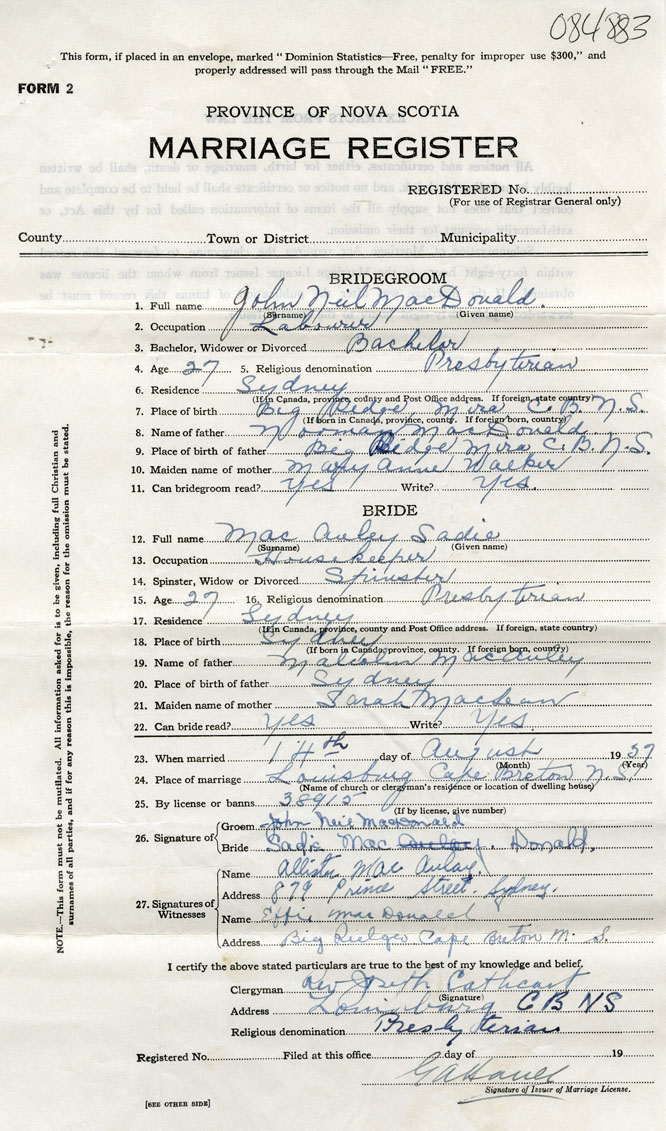 084883
This form, if placed in an envelope, marked "Dominion Statistics—Free, penalty for improper use $300," and
properly addressed will pass through the Mail "FREE."
FORM 2
PROVINCE OF NOVA SCOTIA
MARRIAGE REGISTER
REGISTERED No.
(For use of Registrar General only)
County Town or District Municipality
BRIDEGROOM
1. Full name John Neil MacDonald.
(Surname) (Given name)
2. Occupation Labourer
3. Bachelor, Widower or Divorced Bachelor
4. Age 27 5. Religious denomination Presbyterian
6. Residence Sydney
(If in Canada, province, county and Post Office address. If foreign, state country)
7. Place of birth Big Ridge, Mira C. B. N. S.
(If born in Canada, province, county. If foreign born, country)
8. Name of father Norman MacDonald
9. Place of birth of father Big Ridge Mira C. B. N. S.
10. Maiden name of mother Mary Anne Walker
11. Can bridegroom read? Yes Write? Yes.
BRIDE
12. Full name Mac Auley Sadie
(Surname) (Given name)
13. Occupation Housekeeper
14. Spinster, Widow or Divorced Spinster
15. Age 27 16. Religious denomination Presbyterian
17. Residence Sydney
(If in Canada, province, county and Post Office address. If foreign, state country)
18. Place of birth Sydney
(If born in Canada, province, county. If foreign born, county)
19. Name of father Malcolm MacAuley
20. Place of birth of father Sydney
21. Maiden name of mother Sarah MacLean
22. Can bride read? Yes Write? Yes
23. When married 14th day of August 1937
(Month) (Year)
24. Place of marriage Louisburg Cape Breton N. S.
(Name of church or clergyman's residence or location of dwelling house)
25. By license or banns 38915
(If by license, give number)
26. Signature of
Groom John Neil MacDonald
Bride Sadie Mac Donald.
27. Signatures of Witnesses
Name Allister MacAulay
Address 879 Prince Street. Sydney.
Name Effie MacDonald
Address Big Ridge Cape Breton N. S.
I certify the above stated particulars are true to the best of my knowledge and belief.
Clergyman Rev Joseph Cathcart
(Signature)
Address Louisburg C B N S
Religious denomination Presbyterian
Registered No. Filed at this office day of 19
Signature of Issuer of Marriage License.
[SEE OTHER SIDE]
NOTE.—This form must not be mutilated. All information asked for is to be given, including full Christian and
surnames of all parties, and if for any reason this is impossible, the reason for the omission must be stated.